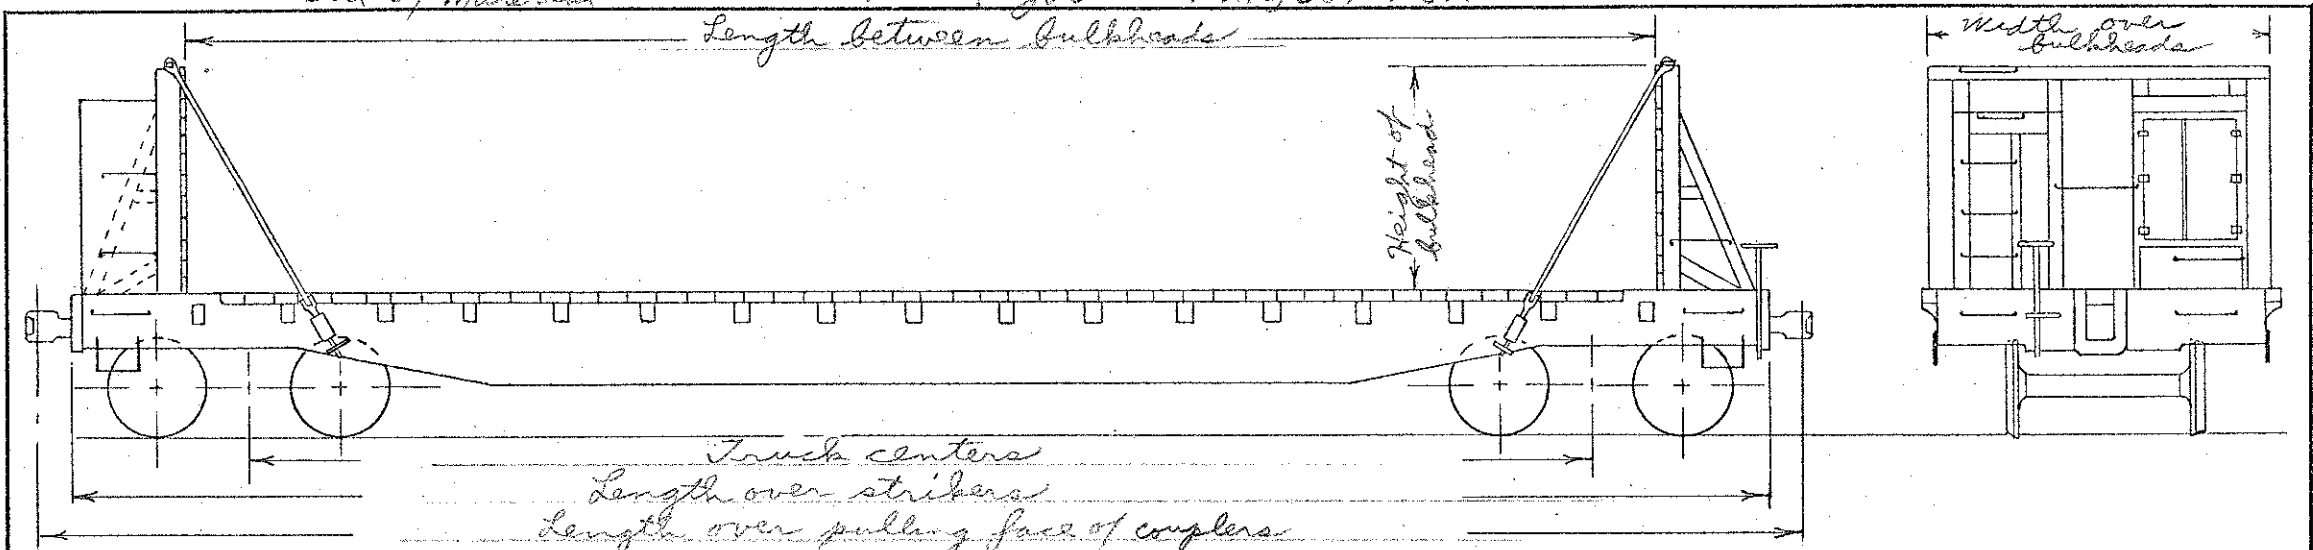 Length between bulkheads
Width over
bulkheads
Height of
bulkhead
Truck centers
Length over strikers
Length over pulling face of couplers